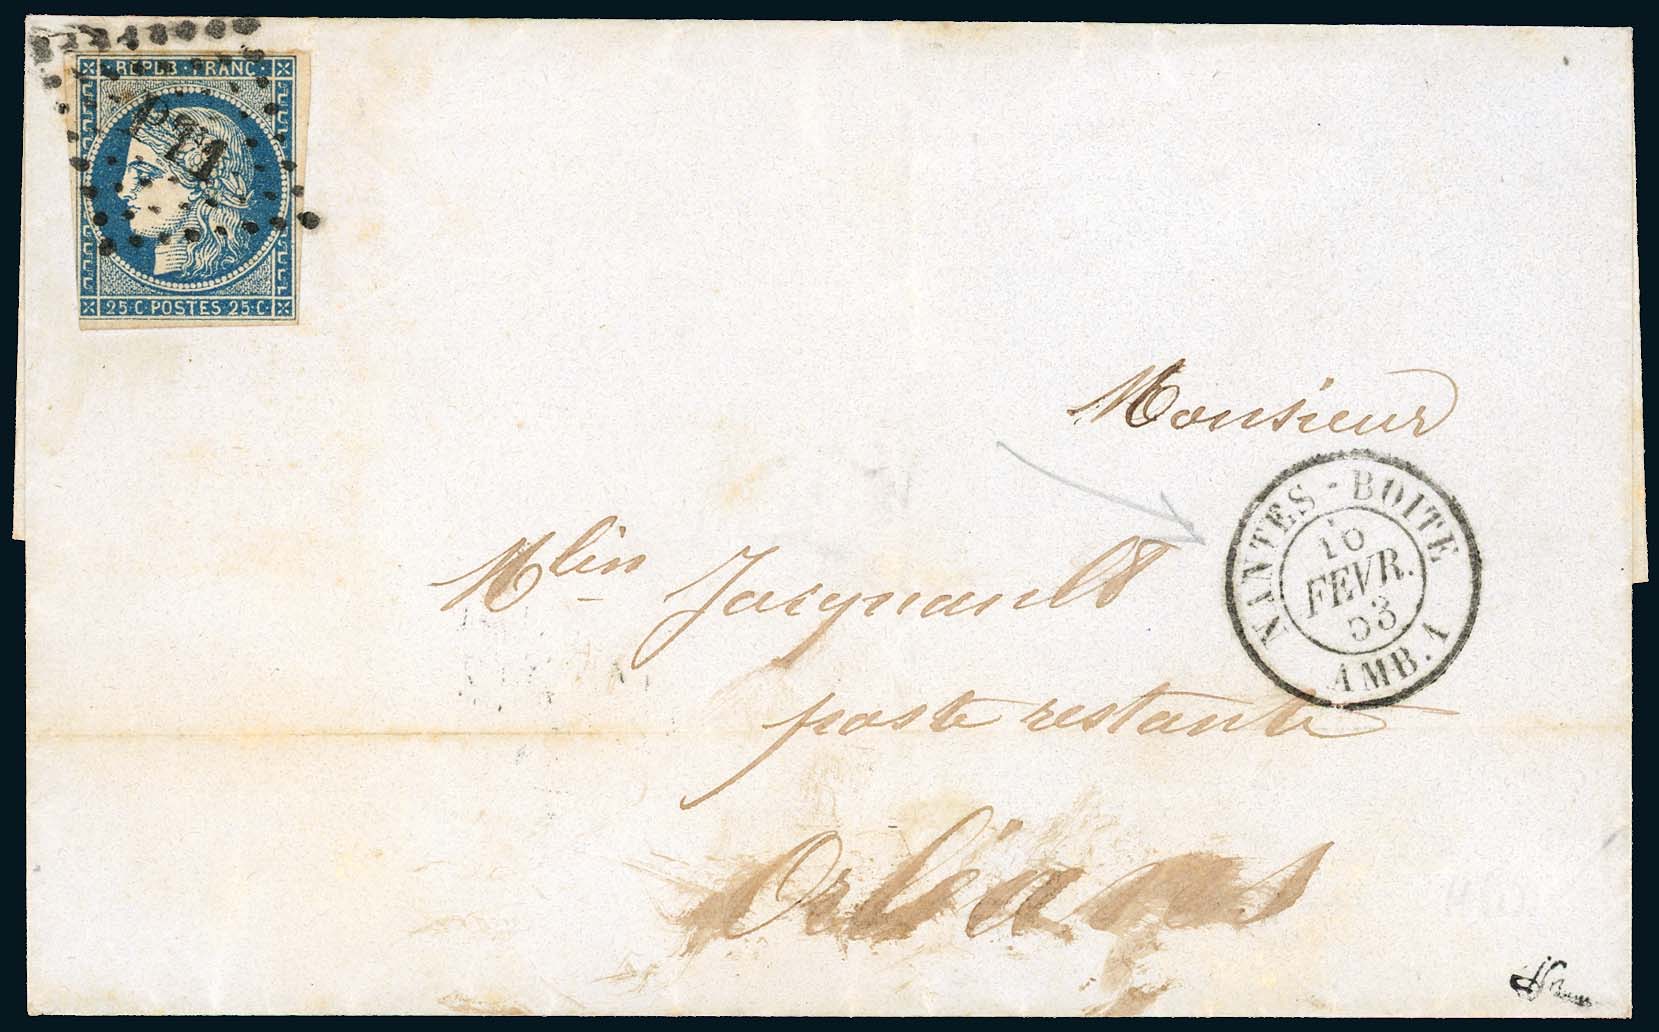 REPUB · FRANC ·
25 · C POSTES 25 · C ·
Monsieur
NANTES - BOITE
10
FEVR.
53
AMB. 1
Mlin Joignault
poste restante
Orléans